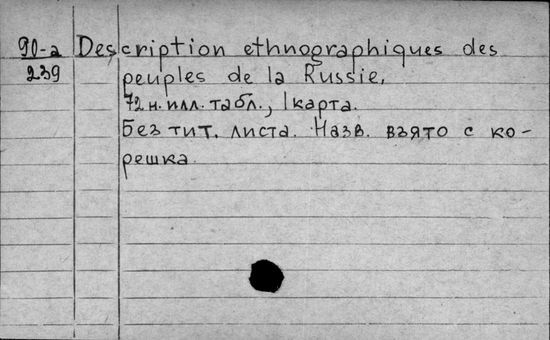 90-а Description ethnographiques des
239 peuples de la Russie,
72 н. илл. табл., 1 карта.
Без тит. листа. Назв. взято с ко-
решка.